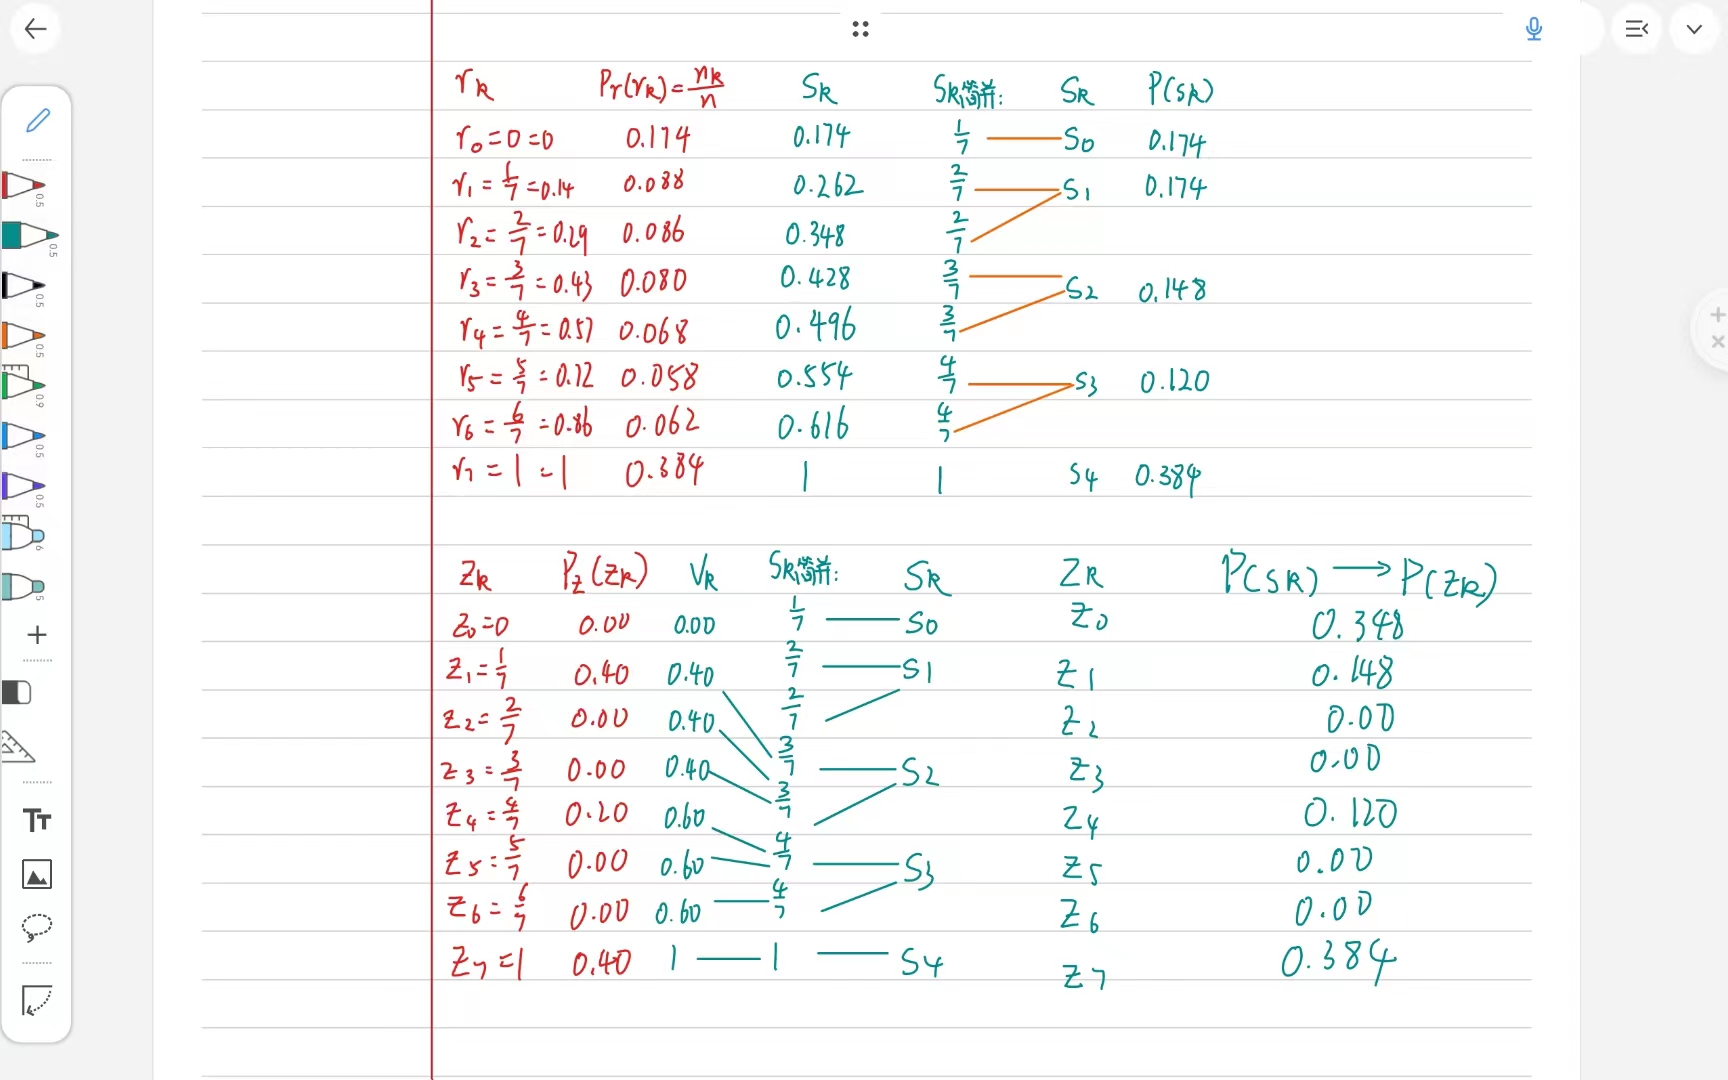 rk Pr(rk)=nk/n Sk Sk简并: Sk P(sk)
r0=0=0 0.174 0.174 1/7 S0 0.174
r1=1/7=0.14 0.088 0.262 2/7 S1 0.174
r2=2/7=0.29 0.086 0.348 2/7
r3=3/7=0.43 0.080 0.428 3/7 S2 0.148
r4=4/7=0.57 0.068 0.496 3/7
r5=5/7=0.72 0.058 0.554 4/7 S3 0.120
r6=6/7=0.86 0.062 0.616 4/7
r7=1=1 0.384 1 1 S4 0.384
Zk Pz(Zk) Vk Sk简并: Sk Zk P(sk)→P(Zk)
Z0=0 0.00 0.00 1/7 S0 Z0 0.348
Z1=1/7 0.40 0.40 2/7 S1 Z1 0.148
Z2=2/7 0.00 0.40 2/7 Z2 0.00
Z3=3/7 0.00 0.40 3/7 S2 Z3 0.00
Z4=4/7 0.20 0.60 3/7 Z4 0.120
Z5=5/7 0.00 0.60 4/7 S3 Z5 0.00
Z6=6/7 0.00 0.60 4/7 Z6 0.00
Z7=1 0.40 1 1 S4 Z7 0.384
0.5
0.5
0.5
0.5
0.9
0.5
0.5
6
5
TT